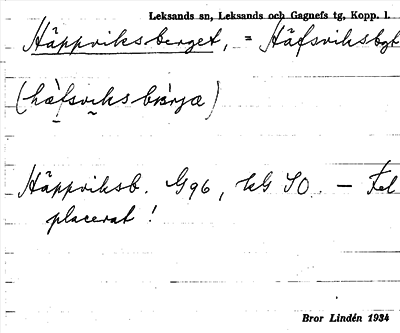 Leksands sn, Leksands och Gagnefs tg, Kopp. l.
Häppviksberget, = Häfsviksbgt
(hæ̀fsviksbærjæ)
Häppviksb. G96, kG SO. — Fel
placerat!
Bror Lindén 1934